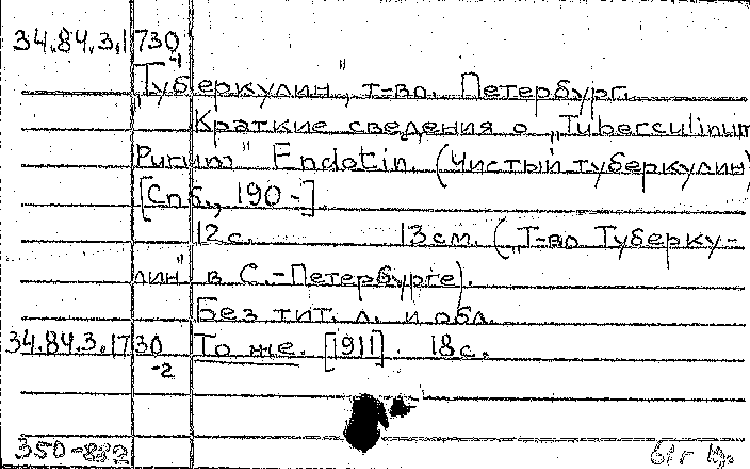 34.84.3.1730
„Туберкулин", т-во. Петербург.
Краткие сведения о „Tuberculinum
Purum" Endotin. (Чистый туберкулин)
[Спб., 190-].
12с. 13см. („Т-во Туберку-
лин" в С.-Петербурге).
Без тит. л. и обл.
34.84.3.1730 То же. [1911]. 18с.
-2
350-882